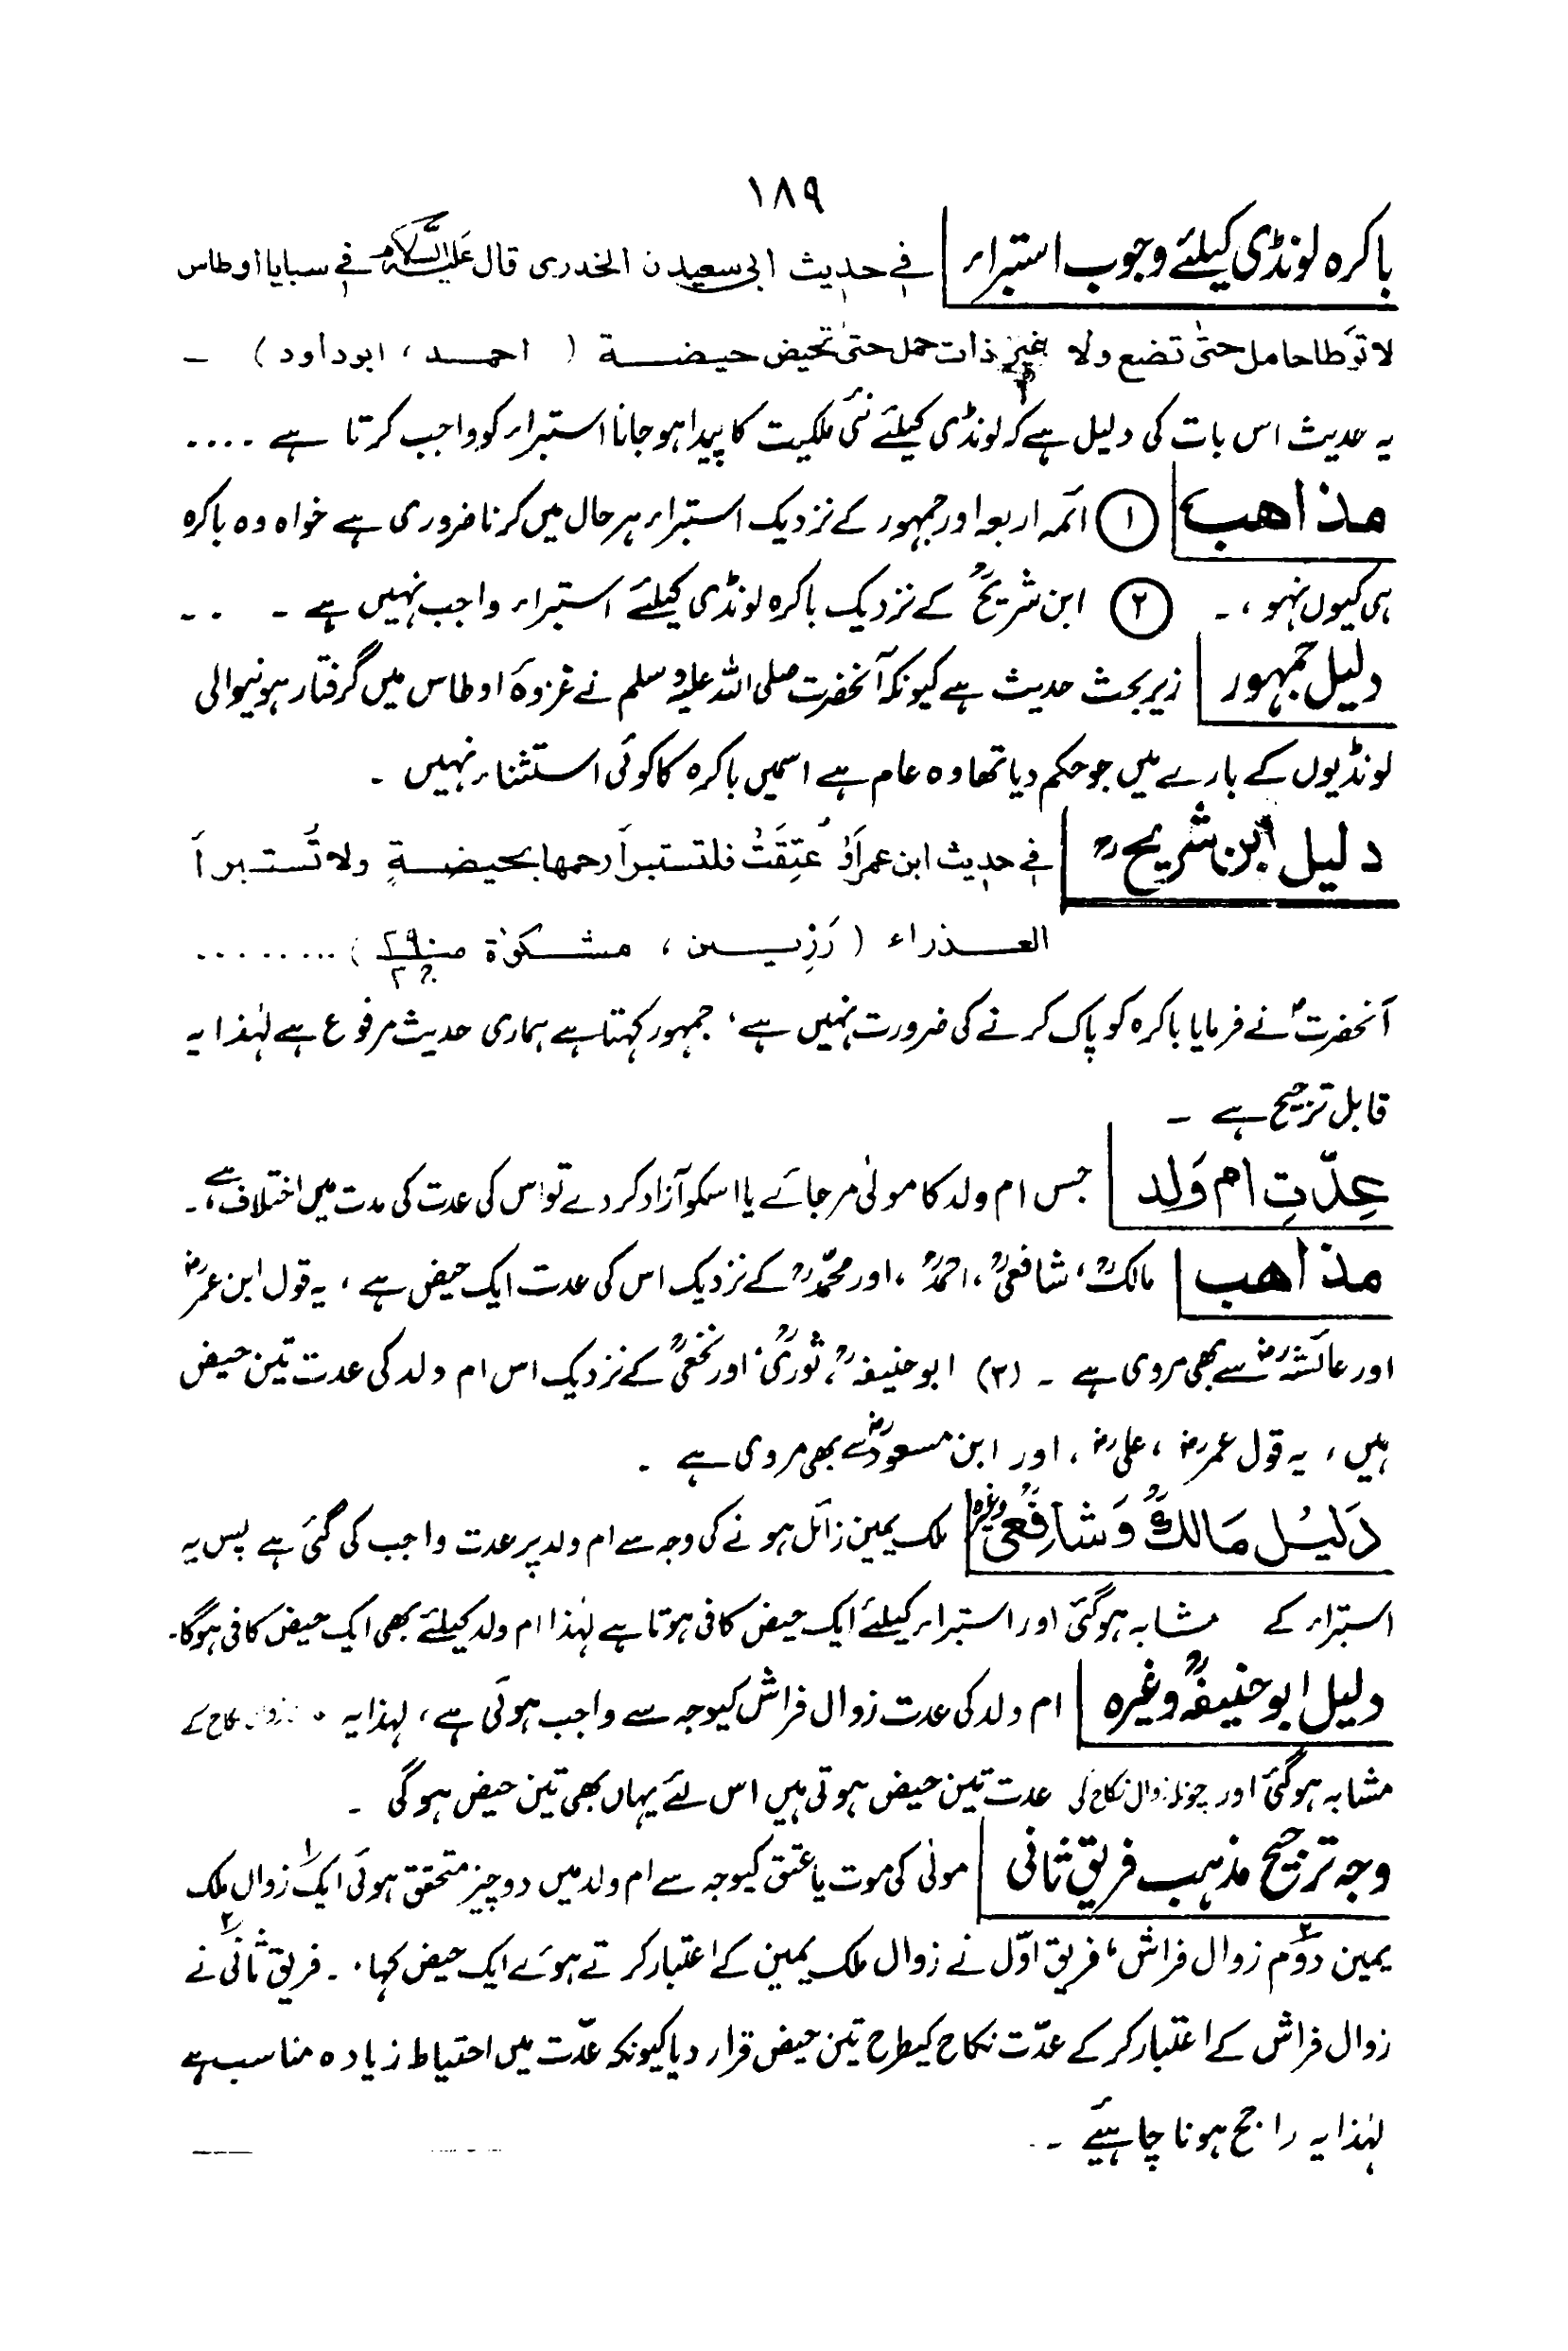 ۱۸۹
باکرہ لونڈی کیلئے وجوب استبراء فی حدیث ابی سعیدن الخدری قال علیہ السلام فی سبایا اوطاس
لا توَطا حامل حتیٰ تضع ولا غیر ذات حمل حتیٰ تحیض حیضة ( احمد ، ابوداود ) ـ
یہ حدیث اس بات کی دلیل ہے کہ لونڈی کیلئے نئی ملکیت کا پیدا ہو جانا استبراء کو واجب کرتا ہے ....
مذاهب ① ائمہ اربعہ اور جمہور کے نزدیک استبراء ہر حال میں کرنا ضروری ہے خواہ وہ باکرہ
ہی کیوں نہو ، ۔ ② ابن شریحؒ کے نزدیک باکرہ لونڈی کیلئے استبراء واجب نہیں ہے ۔ ۔ ۔
دلیل جمہور زیر بحث حدیث ہے کیونکہ آنحضرت صلی اللہ علیہ وسلم نے غزوۂ اوطاس میں گرفتار ہونیوالی
لونڈیوں کے بارے میں جو حکم دیا تھا وہ عام ہے اسمیں باکرہ کا کوئی استثناء نہیں ۔
دلیل ابن شریحؒ فی حدیث ابن عمر اَوْ عُتِقَتْ فلتستبرأ رحمها بحیضةٍ ولا تُستبرأ
العذراء ( رَزِین ، مشکوٰة ) ........
آنحضرتؐ نے فرمایا باکرہ کو پاک کرنے کی ضرورت نہیں ہے ، جمہور کہتا ہے ہماری حدیث مرفوع ہے لہٰذا یہ
قابل ترجیح ہے ۔
عِدّتِ ام وَلد جس ام ولد کا مولیٰ مر جائے یا اسکو آزاد کر دے تو اس کی عدت کی مدت میں اختلاف ہے ۔
مذاهب مالکؒ ، شافعیؒ ، احمدؒ ، اور محمّدؒ کے نزدیک اس کی عدت ایک حیض ہے ، یہ قول ابن عمرؓ
اور عائشہؓ سے بھی مروی ہے ۔ (۲) ابو حنیفہؒ ، ثوریؒ ، اور نخعیؒ کے نزدیک اس ام ولد کی عدت تین حیض
ہیں ، یہ قول عمرؓ ، علیؓ ، اور ابن مسعودؓ سے بھی مروی ہے ۔
دَلیُل مَالکؒ وَ شَافِعیؒ وغیرہ ملک یمین زائل ہونے کی وجہ سے ام ولد پر عدت واجب کی گئی ہے پس یہ
استبراء کے مشابہ ہو گئی اور استبراء کیلئے ایک حیض کافی ہوتا ہے لہٰذا ام ولد کیلئے بھی ایک حیض کافی ہوگا۔
دلیل ابو حنیفہؒ وغیرہ ام ولد کی عدت زوال فراش کیوجہ سے واجب ہوئی ہے ، لہذا یہ زوال نکاح کے
مشابہ ہو گئی اور چونکہ زوال نکاح کی عدت تین حیض ہوتی ہیں اس لئے یہاں بھی تین حیض ہوگی ۔
وجہ ترجیح مذہب فریق ثانی مولیٰ کی موت یا عتق کیوجہ سے ام ولد میں دو چیز متحقق ہوئی ایک۱ زوال ملک
یمین دوّم۲ زوال فراش ، فریق اوّل نے زوال ملک یمین کے اعتبار کرتے ہوئے ایک حیض کہا ، ۔ فریق ثانی۲ نے
زوال فراش کے اعتبار کر کے عدّت نکاح کیطرح تین حیض قرار دیا کیونکہ عدّت میں احتیاط زیادہ مناسب ہے
لہٰذا یہ راجح ہونا چاہئے ۔